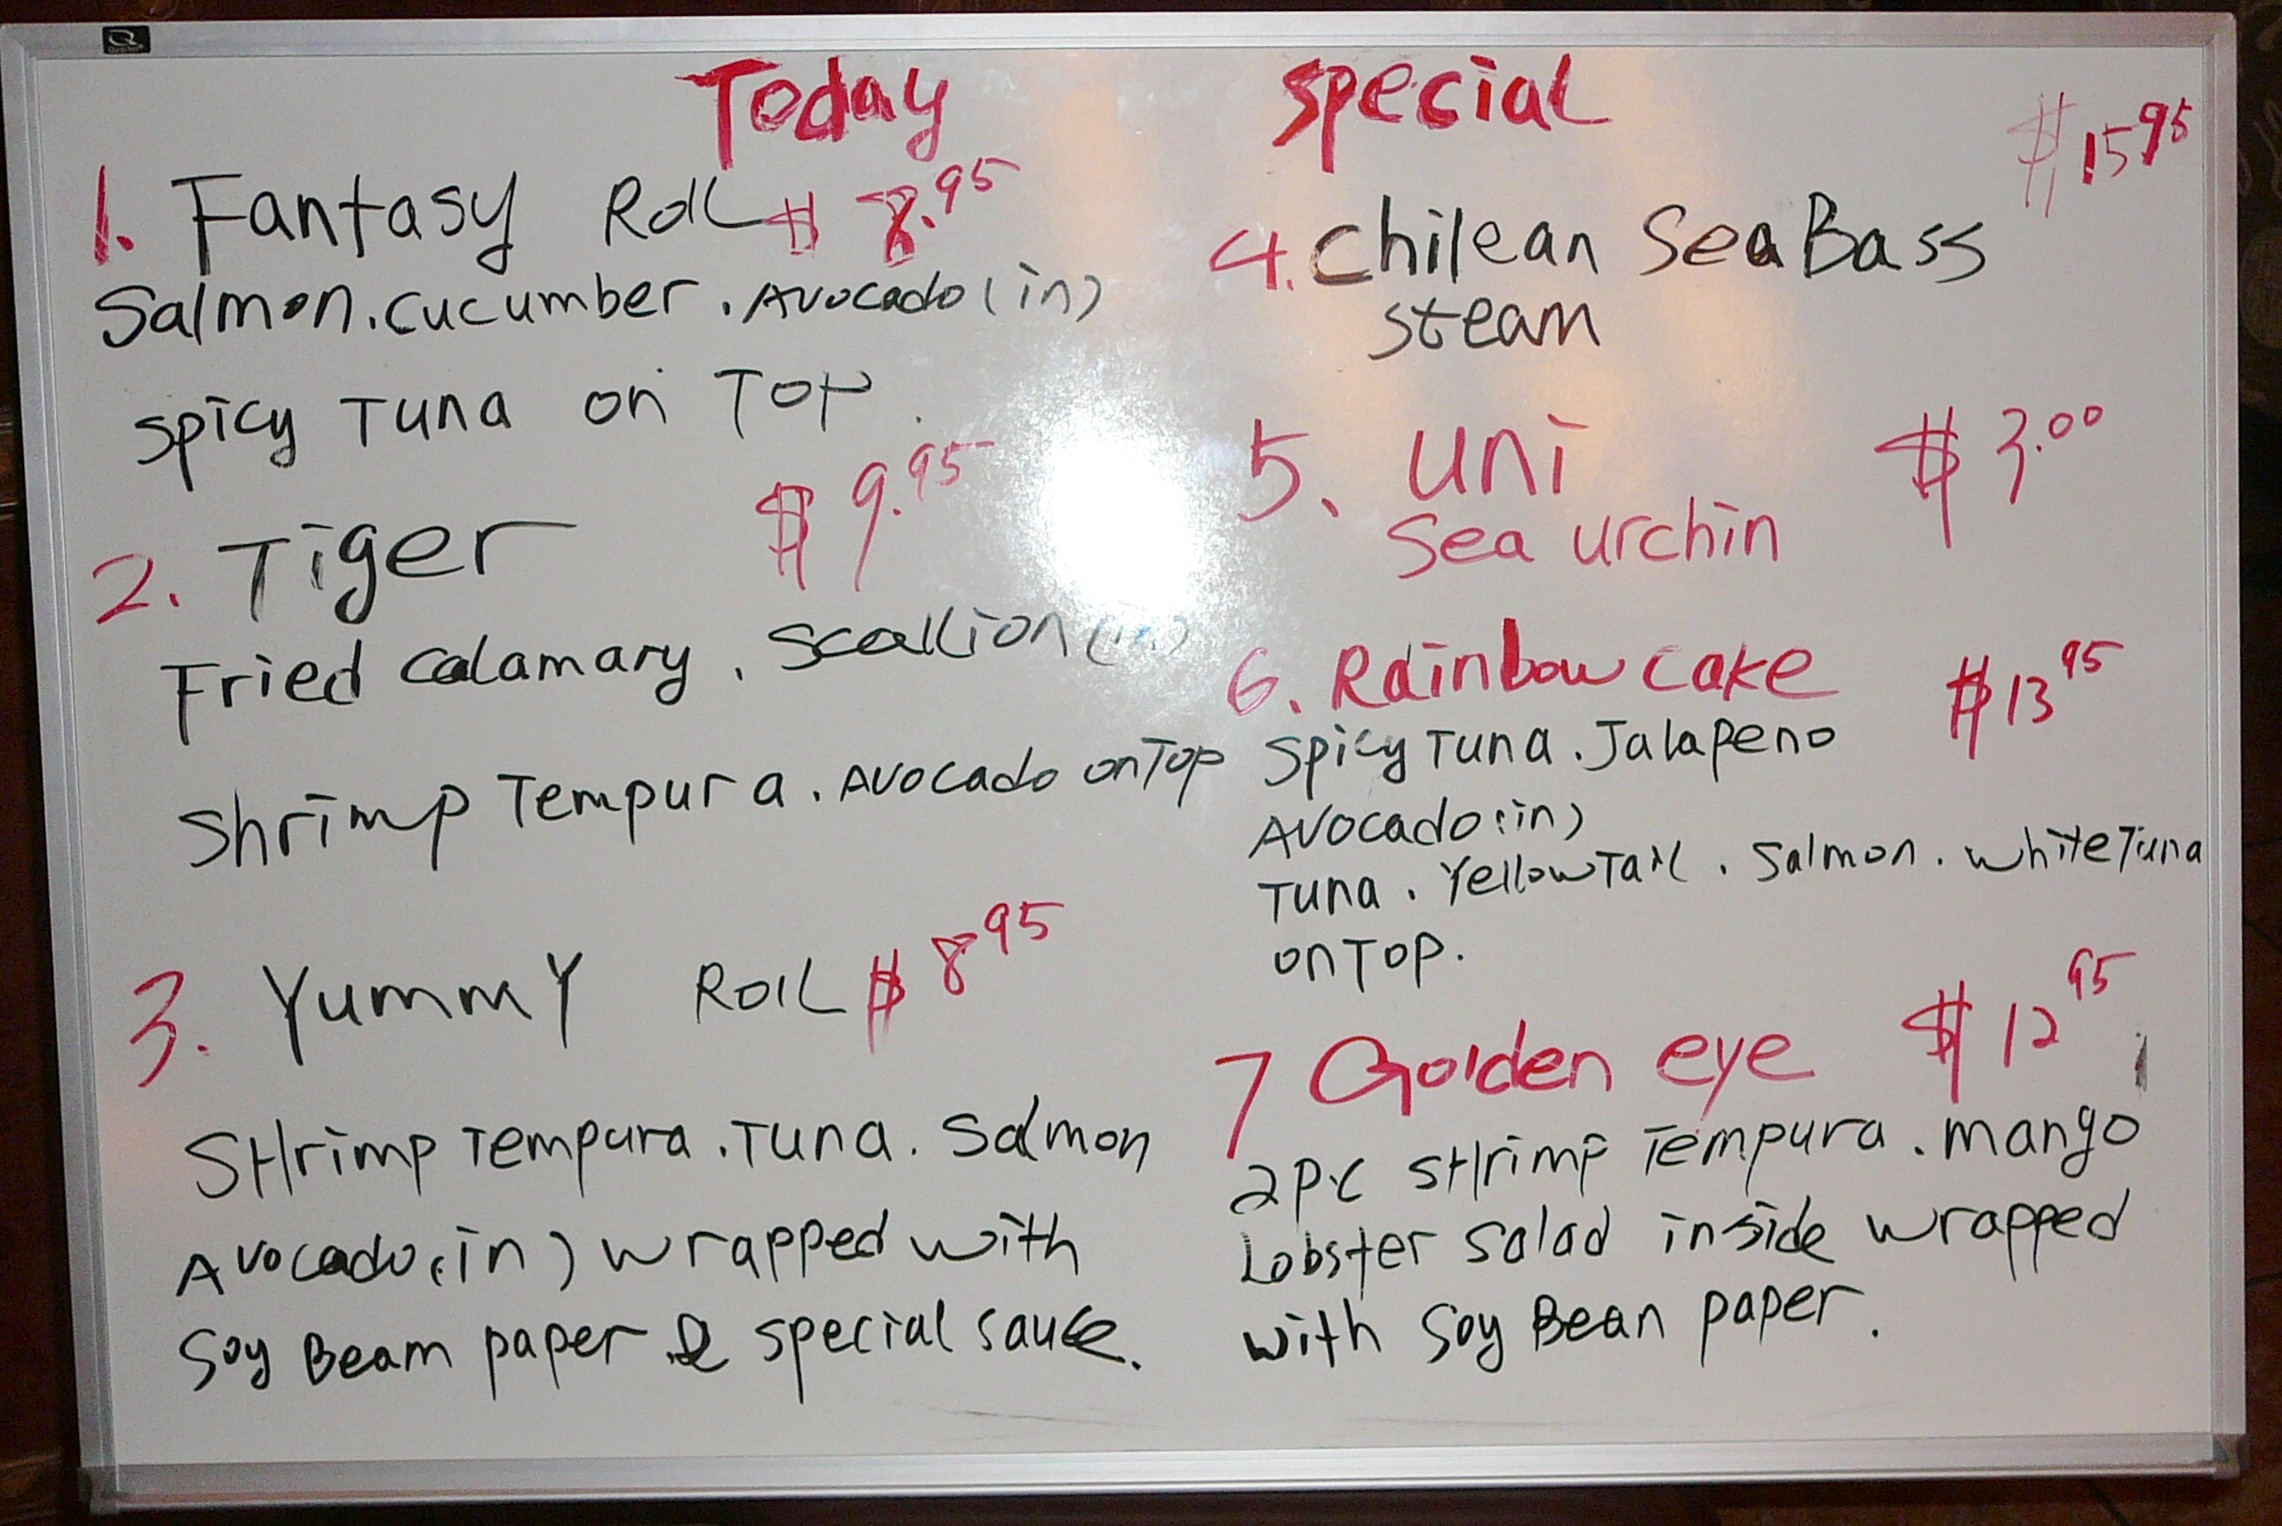 Today Special
1. Fantasy Roll $ 8.95
Salmon. cucumber. Avocado (in)
spicy Tuna on Top.
2. Tiger $ 9.95
Fried calamary. scallion (in)
Shrimp Tempura. Avocado on Top
3. Yummy Roll $ 8 95
SHrimp Tempura. Tuna. Salmon
Avocado (in) wrapped with
Soy Beam paper & special sauce.
$ 15 95
4. Chilean Sea Bass
steam
5. uni $ 3.00
Sea urchin
6. Rainbow cake $ 13 95
Spicy Tuna. Jalapeno
Avocado (in)
Tuna. Yellow Tail. Salmon. white Tuna
on Top.
7 Golden eye $ 12 95
2 P.C SHrimp Tempura. mango
Lobster Salad inside wrapped
with Soy Bean paper.